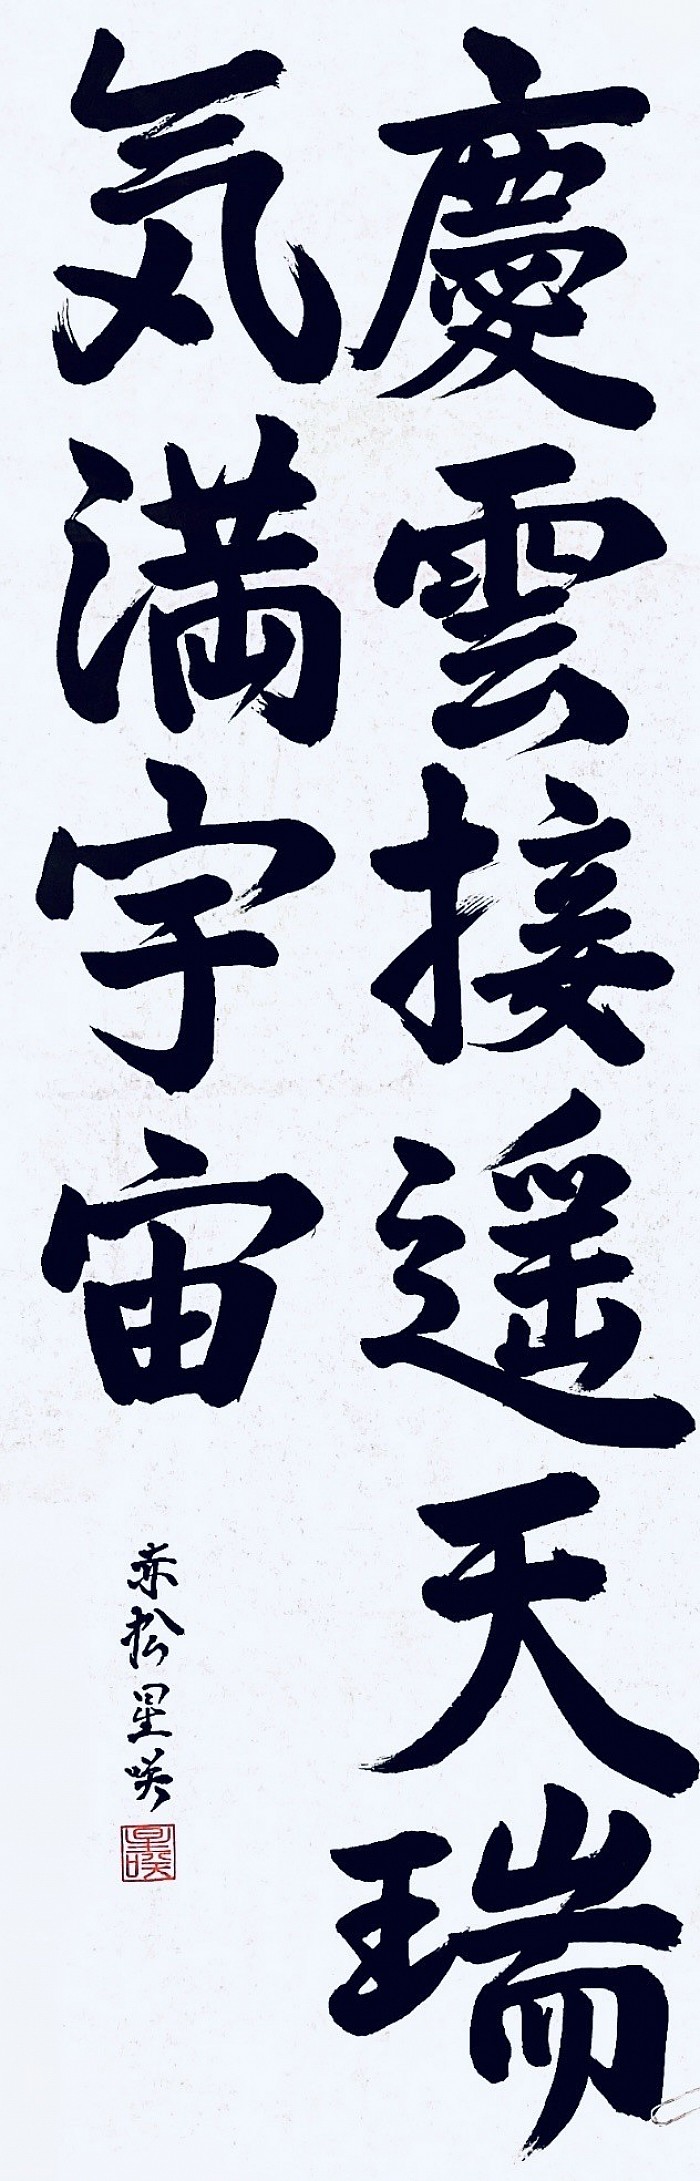 慶雲接遥天瑞
気満宇宙
赤松星咲
星咲